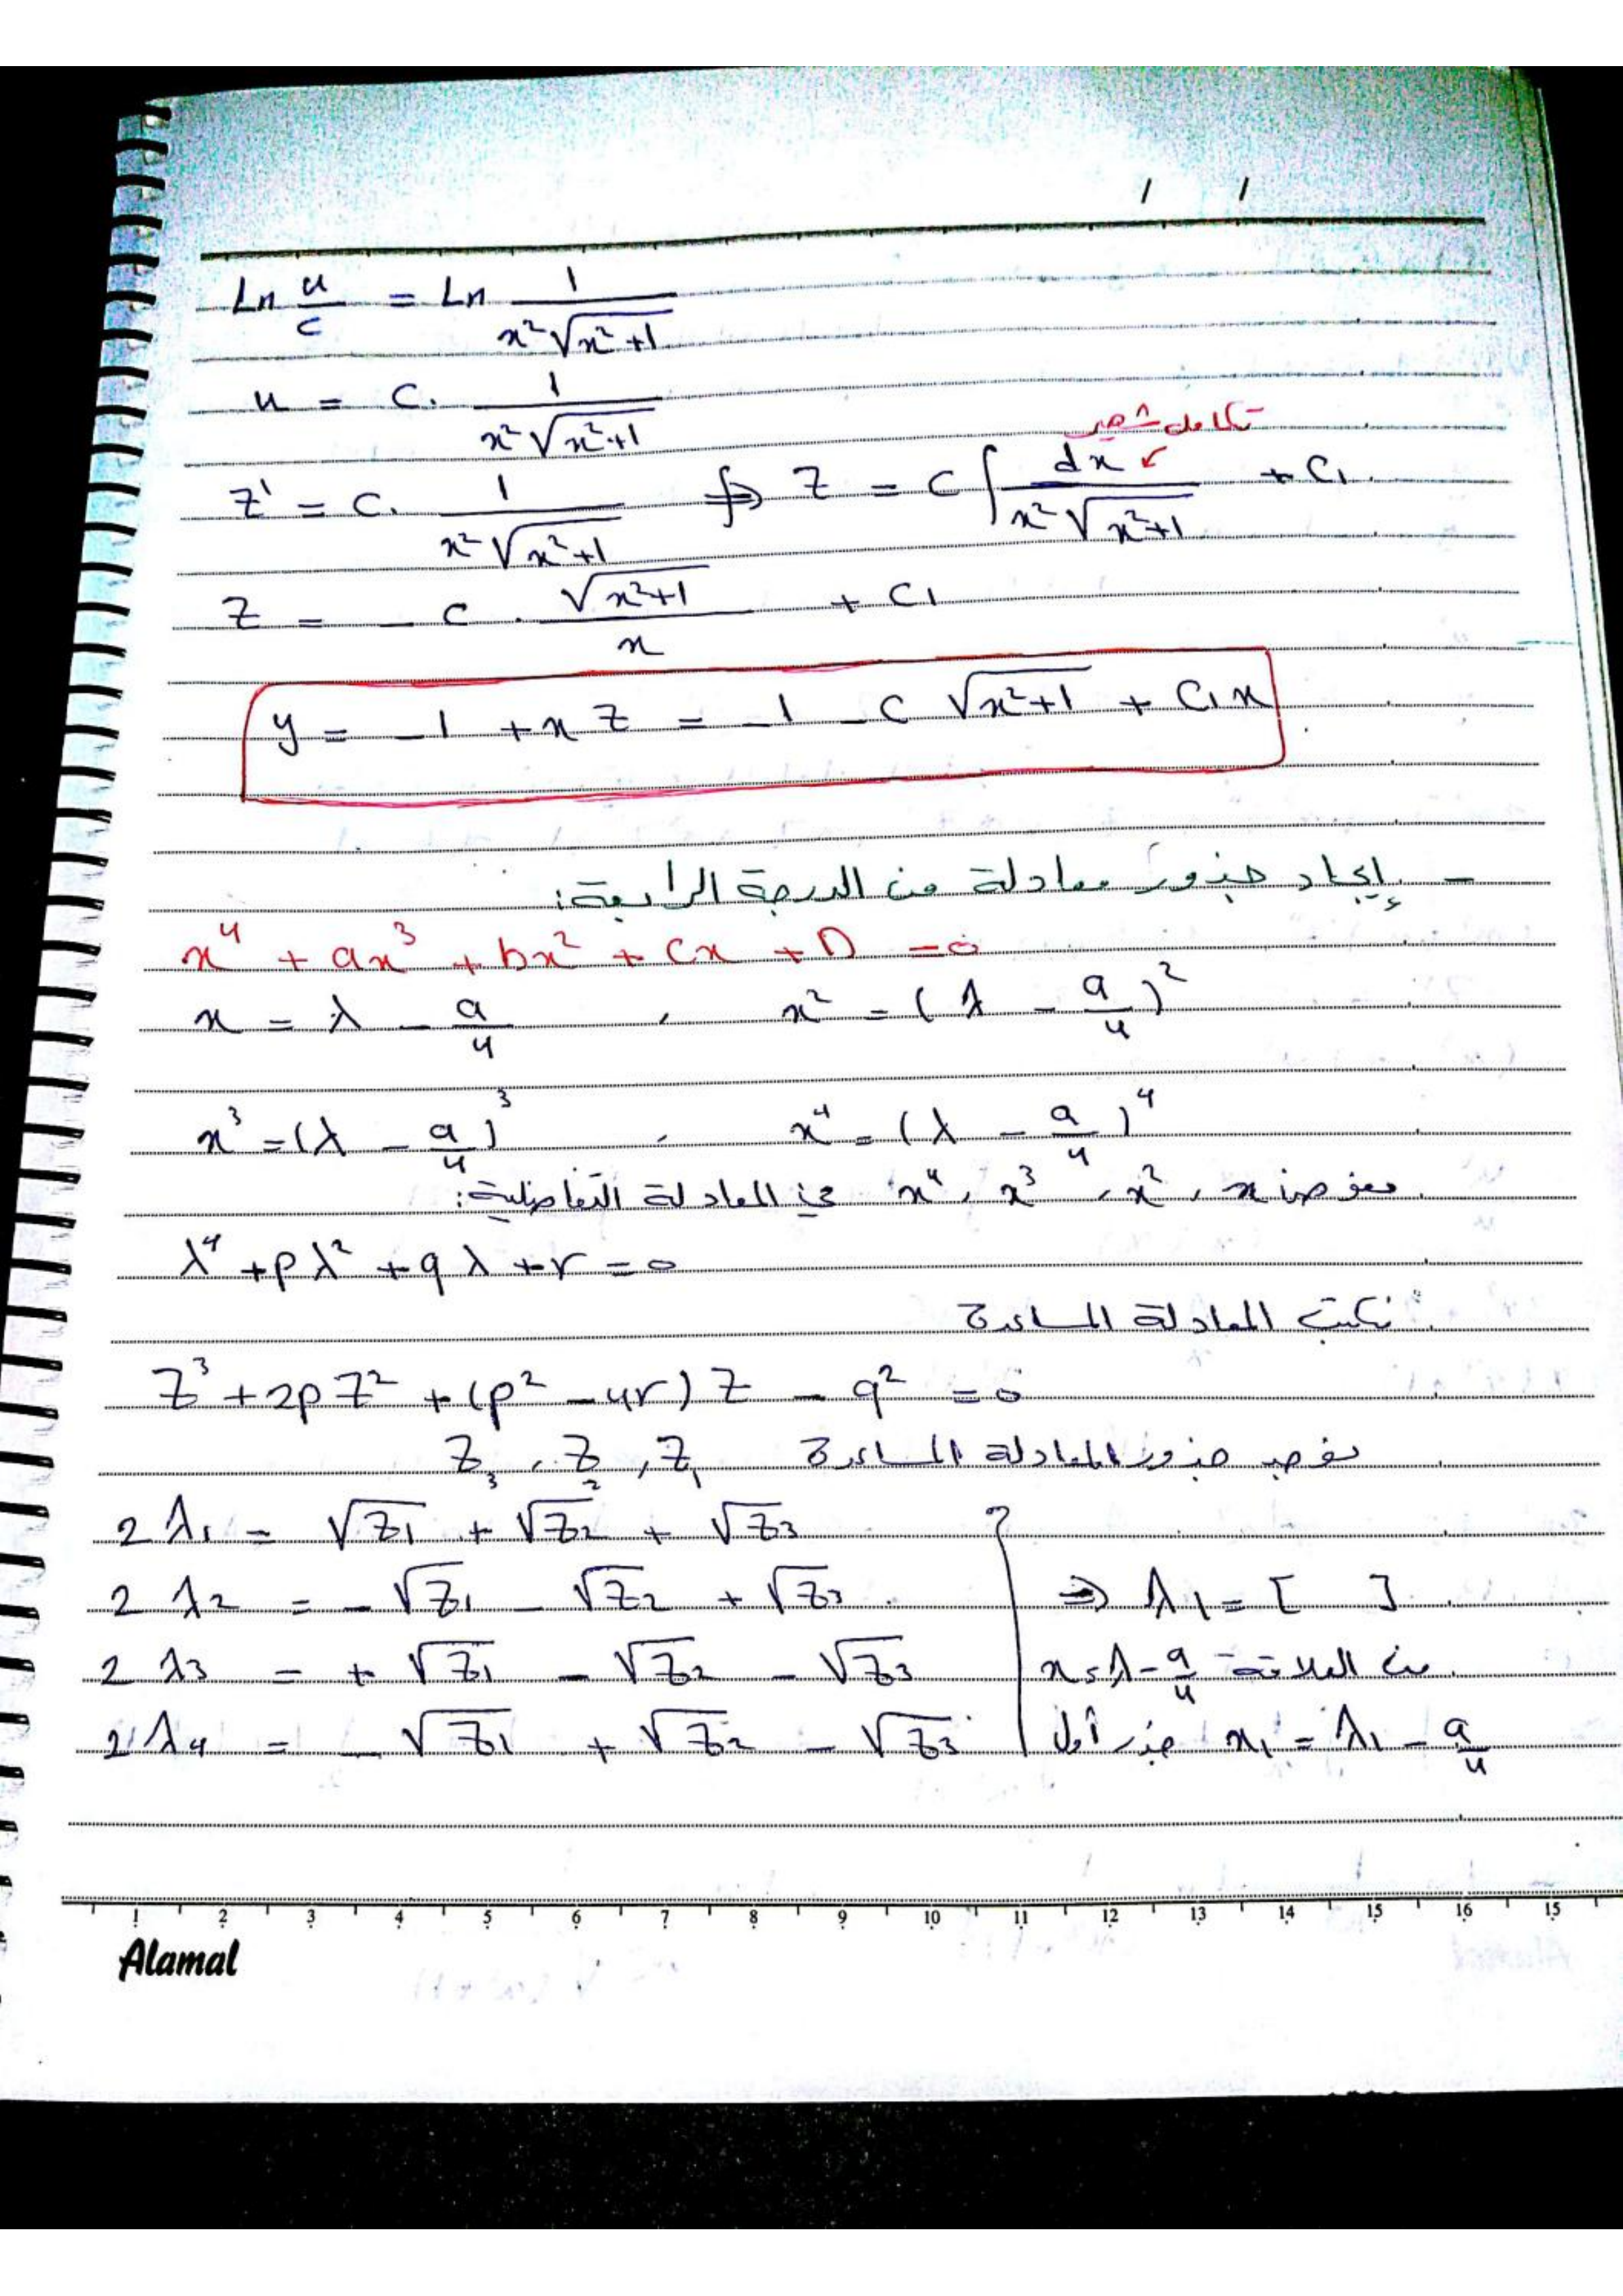 / /
Ln u/c = Ln 1/(x²√(x²+1))
u = c. 1/(x²√(x²+1))
تكامل شهير
z' = c. 1/(x²√(x²+1)) ⇒ z = c ∫ dx/(x²√(x²+1)) + c₁
z = - c . √(x²+1)/x + c₁
y = -1 + x z = -1 - c √(x²+1) + c₁x
- إيجاد جذور معادلة من الدرجة الرابعة:
x⁴ + ax³ + bx² + cx + D = 0
x = λ - a/4 , x² = (λ - a/4)²
x³ = (λ - a/4)³ , x⁴ = (λ - a/4)⁴
نعوض x , x² , x³ , x⁴ في المعادلة التفاضلية:
λ⁴ + pλ² + qλ + r = 0
نكتب المعادلة المساعدة
z³ + 2pz² + (p² - 4r) z - q² = 0
نوجد جذور المعادلة المساعدة z₁ , z₂ , z₃
2λ₁ = √z₁ + √z₂ + √z₃
2λ₂ = -√z₁ - √z₂ + √z₃ ⇒ λ₁ = [ ]
2λ₃ = +√z₁ - √z₂ - √z₃ من العلاقة x = λ - a/4
2λ₄ = -√z₁ + √z₂ - √z₃ جذر أول x₁ = λ₁ - a/4
1 2 3 4 5 6 7 8 9 10 11 12 13 14 15 16 15
Alamal